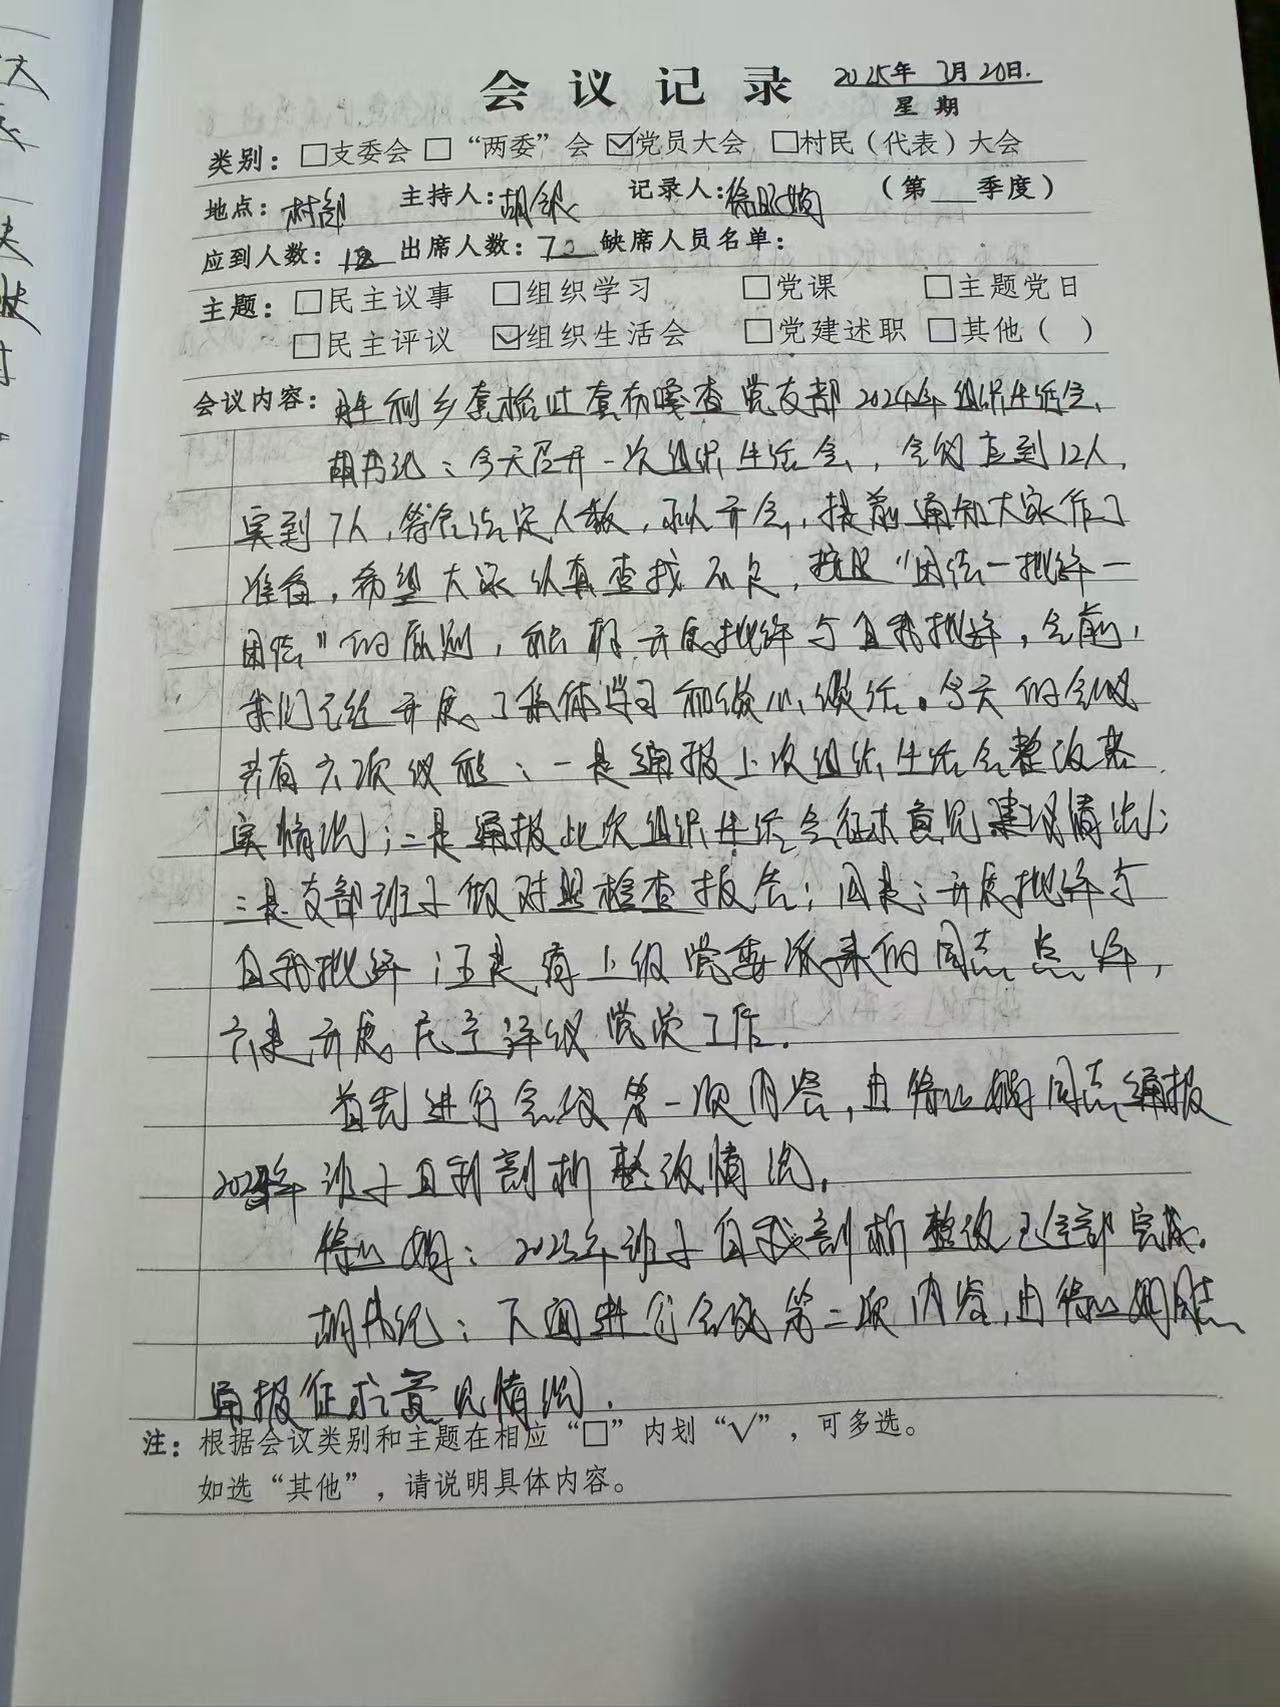 会议记录 2025年 3月20日.
星期
类别：□支委会 □“两委”会 ☑党员大会 □村民（代表）大会
地点：村部 主持人：胡 记录人：徐 （第 季度）
应到人数：12 出席人数：7 缺席人员名单：
主题：□民主议事 □组织学习 □党课 □主题党日
□民主评议 ☑组织生活会 □党建述职 □其他（ ）
会议内容：胜利乡套格吐套布嘎查党支部2024年组织生活会.
胡书记：今天召开一次组织生活会，会议应到12人，
实到7人，符合法定人数，可以开会，提前通知大家作了
准备，希望大家认真查找不足，按照“团结一批评一
团结”的原则，积极开展批评与自我批评，会前，
我们已经开展了集体学习和谈心谈话。今天的会议
共有六项议题：一是通报上次组织生活会整改落
实情况；二是通报此次组织生活会征求意见建议情况；
三是支部班子做对照检查报告；四是：开展批评与
自我批评；五是请上级党委派来的同志点评，
六是开展民主评议党员工作.
首先进行会议第一项内容，由徐 娟同志通报
班子自我剖析整改情况.
徐 娟：2023年班子自我剖析整改已全部完成.
胡书记：下面进行会议第二项内容，由徐 娟同志
通报征求意见情况.
注：根据会议类别和主题在相应“□”内划“√”，可多选。
如选“其他”，请说明具体内容。